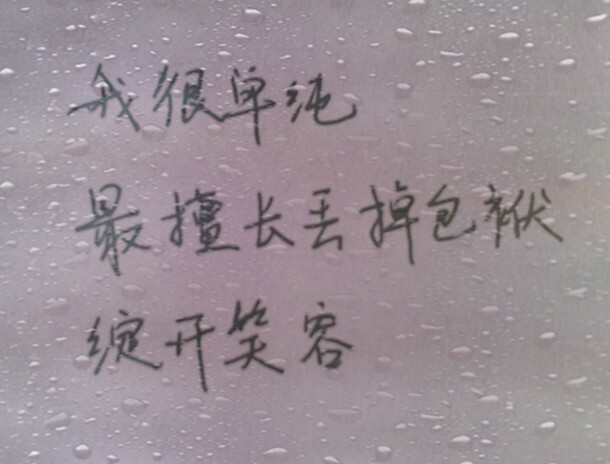 我很单纯
最擅长丢掉包袱
绽开笑容